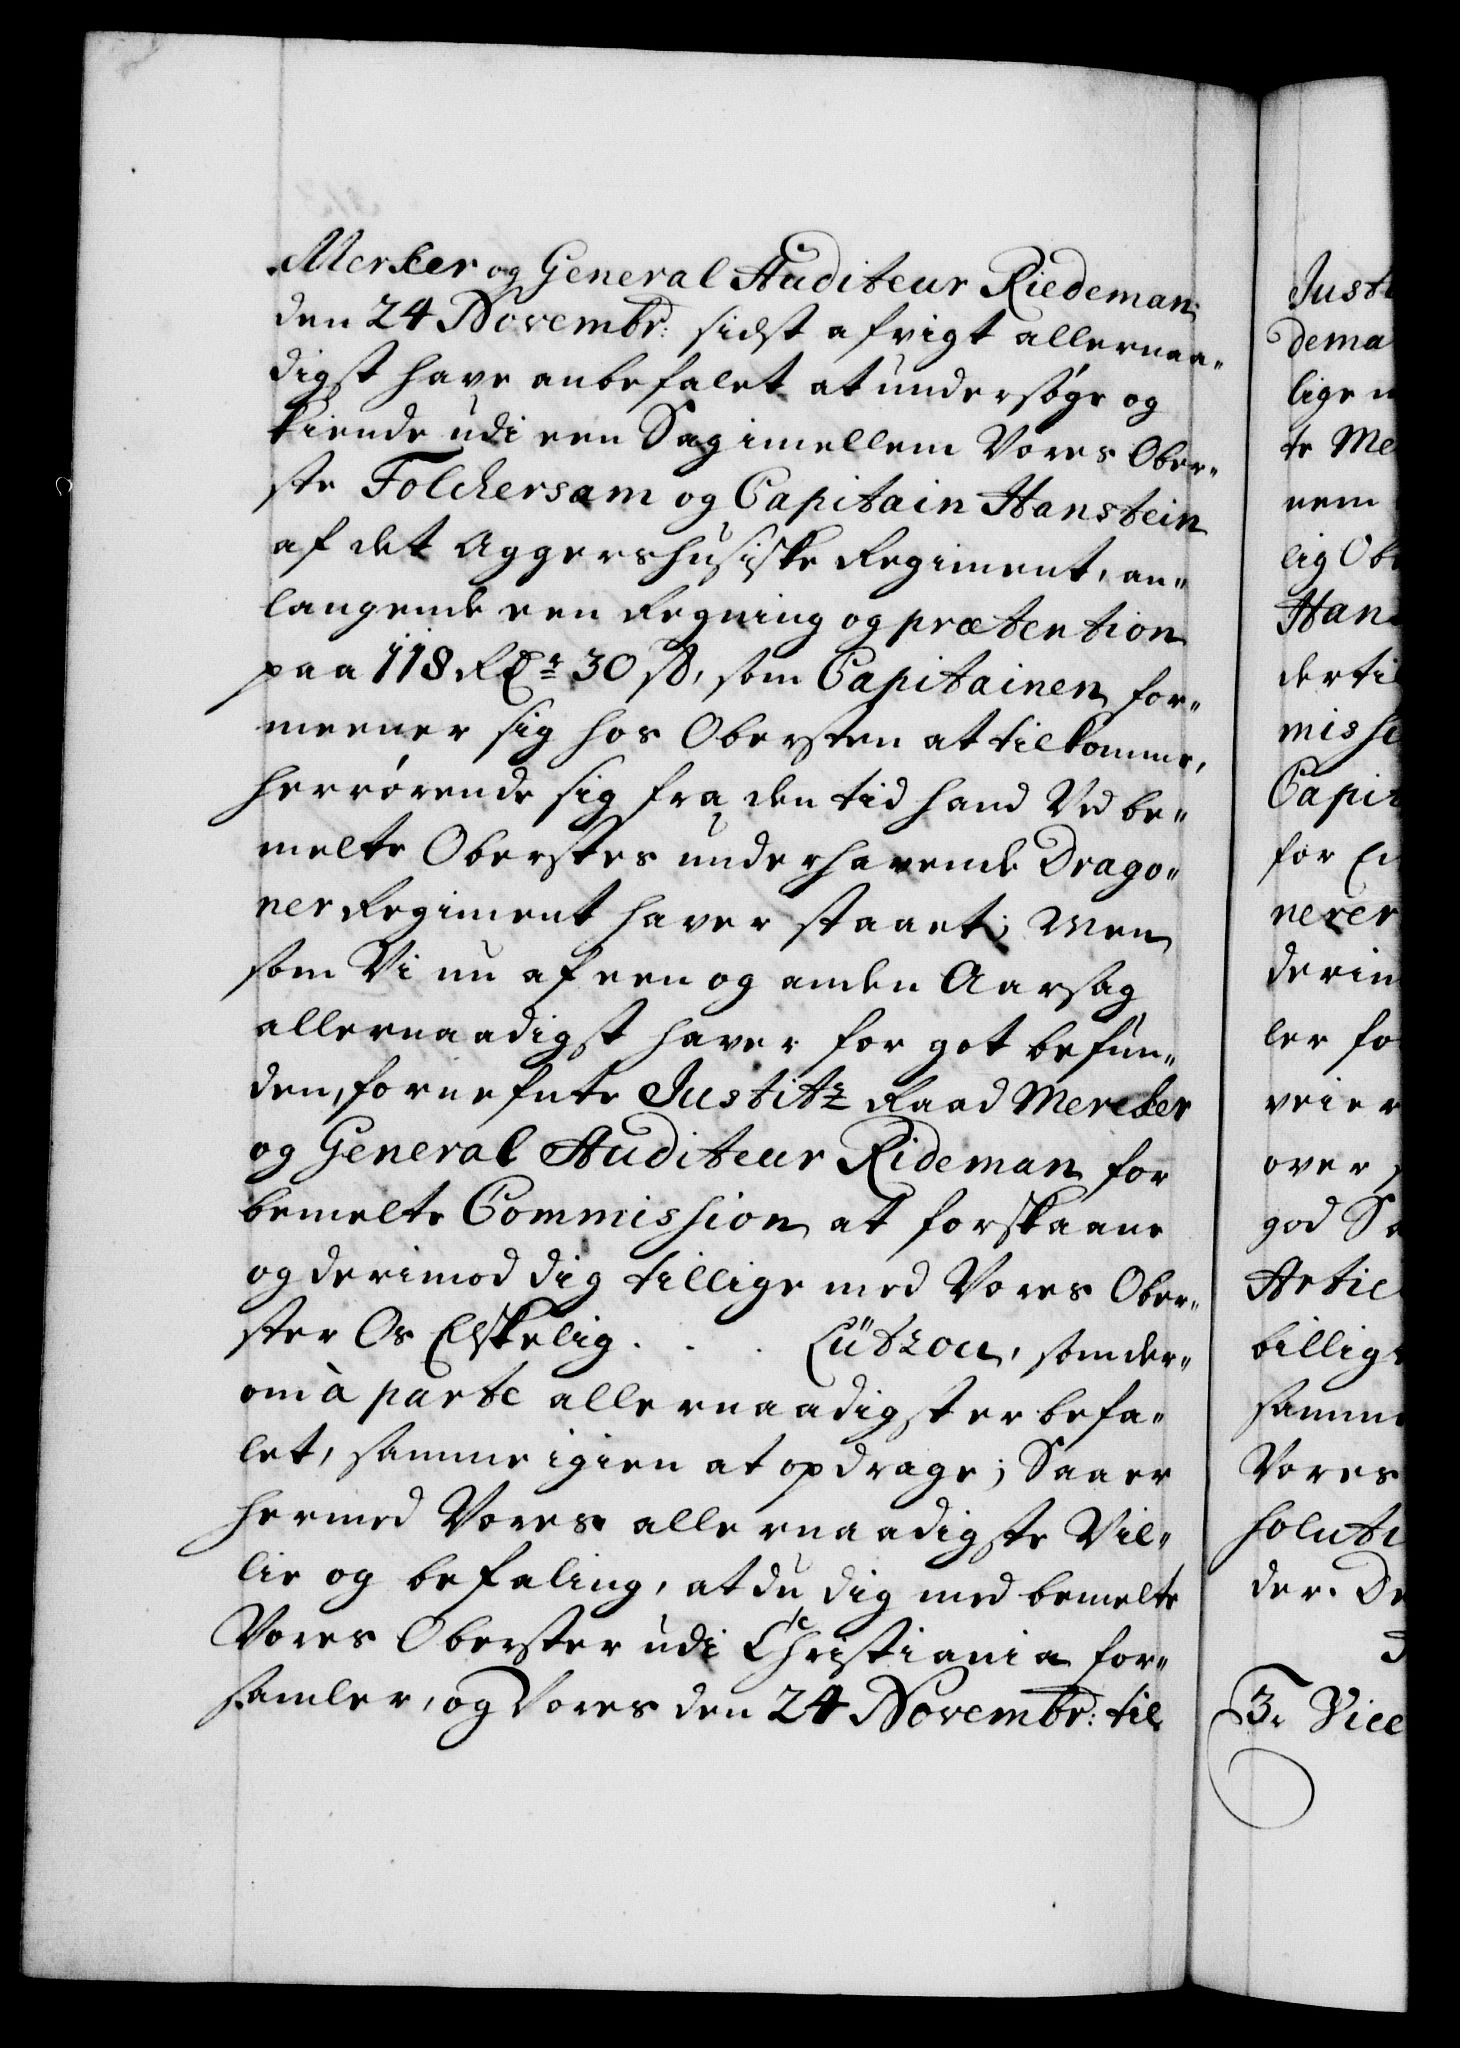 Mercker og General Auditeur Riedeman
den 24 Novembr: sidst afvigt allernaa-
digst have anbefalet at undersøge og
kiende udi een Sag imellem Vores Ober-
ste Folckersam og Capitain Hanstein
af det Aggershusiske Regiment, an-
langende een Regning og prætention
paa 118 Rdr 30 s, som Capitainen for-
meener sig hos Obersten at tilkomme,
herrørende sig fra den tid hand Ved be-
melte Oberstes underhavende Drago-
ner Regiment haver staaet; Men
som Vi nu af een og anden Aarsag
allernaadigst haver for got befun-
den, fornefnte Justitz Raad Mercker
og General Auditeur Rideman for
bemelte Commission at forskaane
og derimod dig tillige med Vores Ober-
ster Os Elskelig . . . Lützou, som der-
om à parte allernaadigst er befa-
let, samme igien at opdrage; Saa er
hermed Vores allernaadigste Vil-
lie og befaling, at du dig med bemelte
Vores Oberster udi Christiania for-
samler, og Vores den 24 Novembr: til
Justi
dema
lige
te Me
nem
lig Ob
Han
der til
missi
Capit
for
nerer
derin
ler fo
veier
over
god
Artic
billig
samme
Vores
soluti
der. De
3. Vice